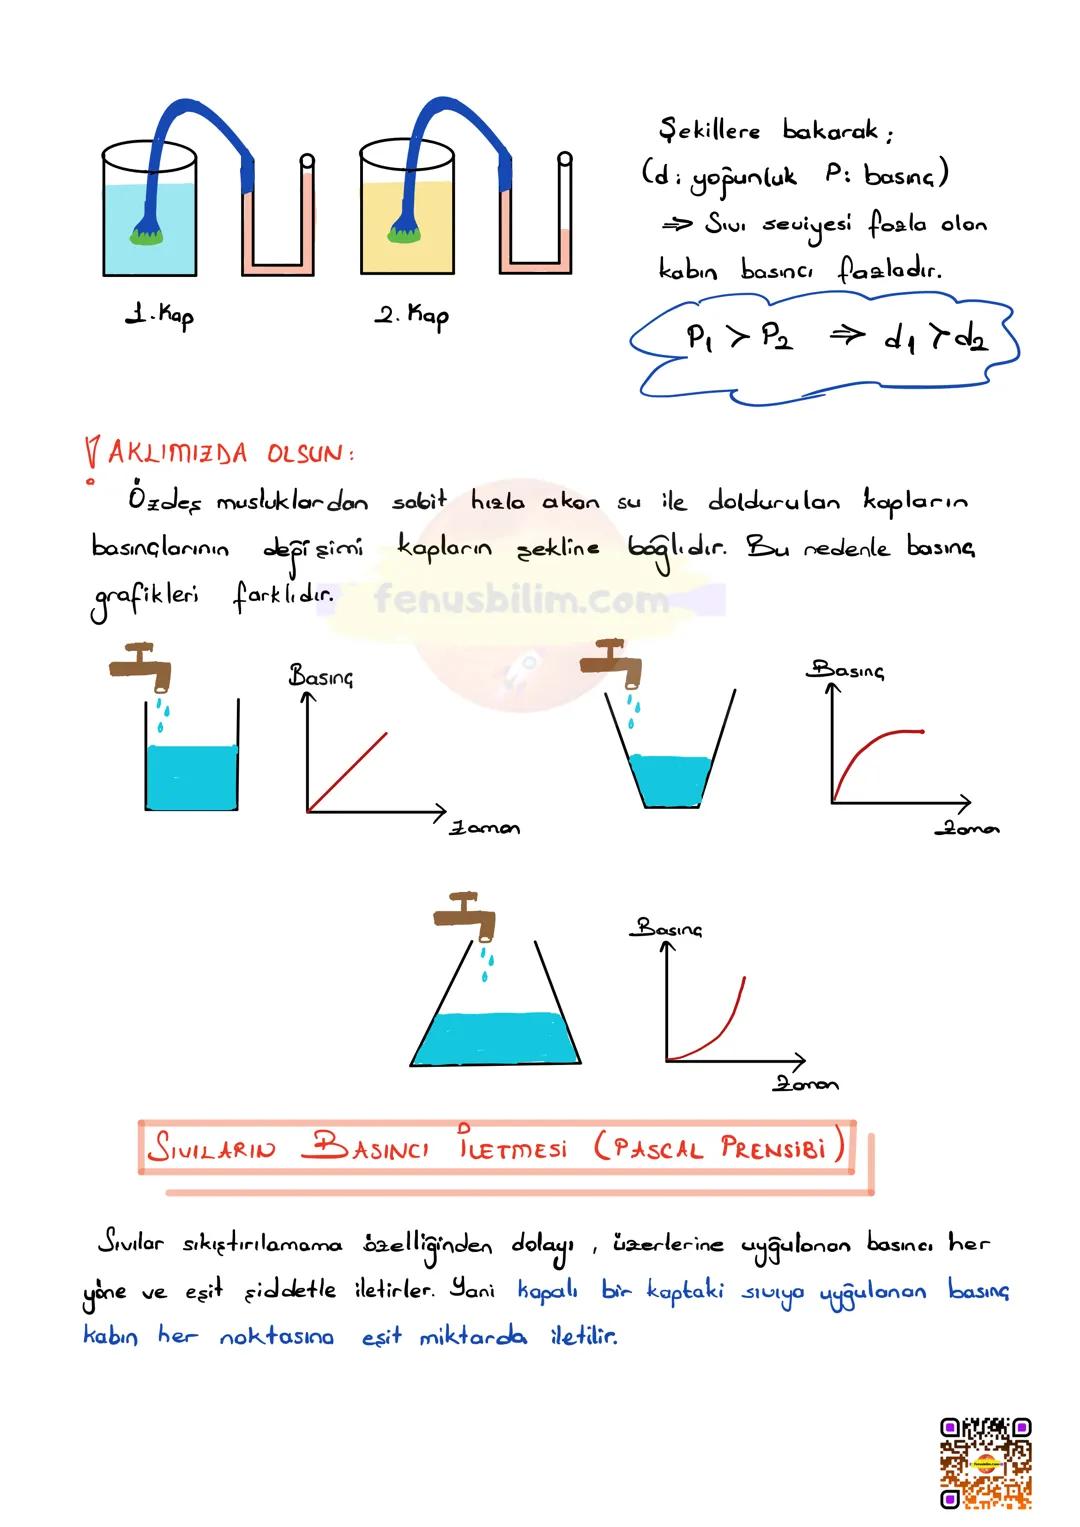 Şekillere bakarak;
(d: yoğunluk P: basınç)
⇒ Sıvı seviyesi fazla olan
kabın basıncı fazladır.
1. Kap
2. Kap
P₁ > P₂ ⇒ d₁ > d₂
! AKLIMIZDA OLSUN:
Özdeş musluklardan sabit hızla akan su ile doldurulan kapların
basınçlarının değişimi kapların şekline bağlıdır. Bu nedenle basınç
grafikleri farklıdır.
fenusbilim.com
Basınç
Zaman
Basınç
Zaman
Basınç
Zaman
SIVILARIN BASINCI İLETMESİ (PASCAL PRENSİBİ)
Sıvılar sıkıştırılamama özelliğinden dolayı, üzerlerine uyğulanan basıncı her
yöne ve eşit şiddetle iletirler. Yani kapalı bir kaptaki sıvıya uyğulanan basınç
kabın her noktasına eşit miktarda iletilir.
fenusbilim.com